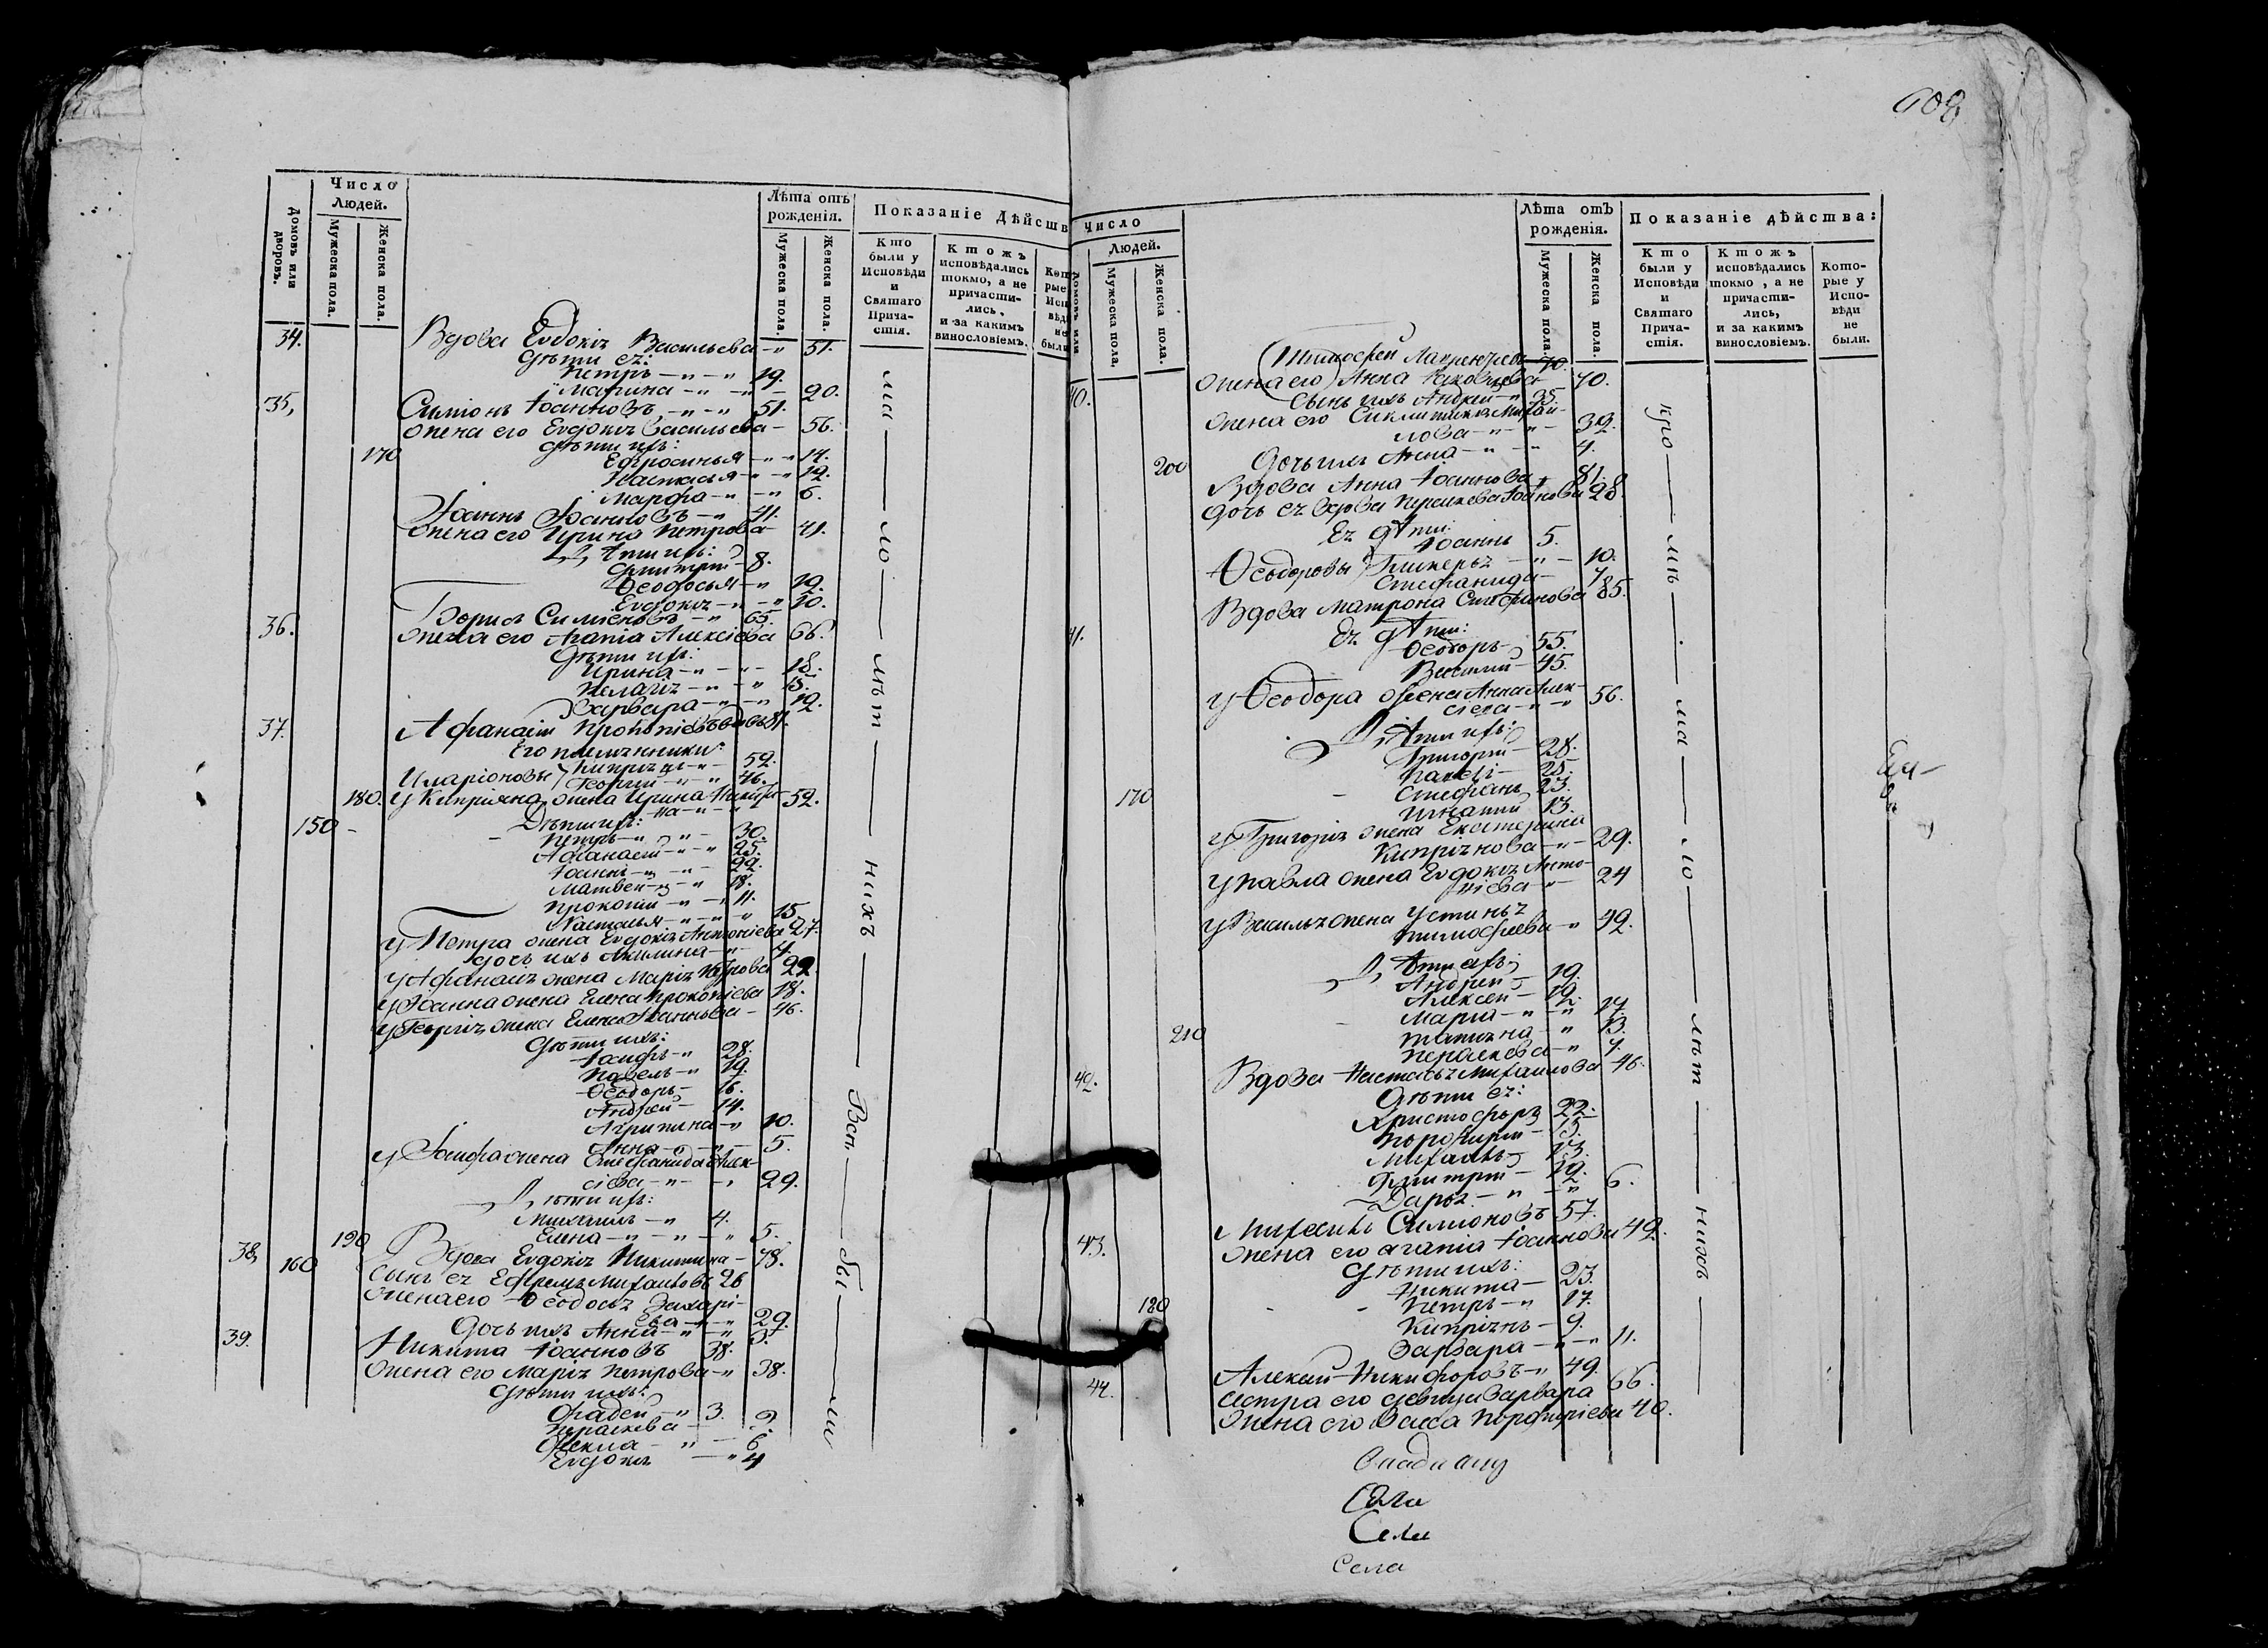 Число
Людей.
Домовъ или дворовъ.
Мужеска пола.
Женска пола.
Лѣта отъ рожденія.
Мужеска пола.
Женска пола.
Показаніе Дѣйств
Кто были у Исповѣди и Святаго Причастія.
Ктожъ исповѣдались токмо, а не причастились, и за какимъ винословіемъ.
34. Вдова Евдокія Васильева 51.
Дѣти ея:
Петръ 19.
Марина 20.
35, Симіонъ Іоанновъ 51.
жена его Евдокія Васильева 56.
дѣти ихъ:
170 Ефросинья 14.
Настасья 12.
Марфа 6.
Іоаннъ Іоанновъ 41.
жена его Ирина Петрова 41.
Дѣти ихъ:
Дмитрій 8.
Ѳеодосья 12.
Евдокія 10.
36. Борисъ Симіоновъ 65.
жена его Агапія Алексіева 66.
Дѣти ихъ:
Ирина 18.
Пелагія 15.
Варвара 12.
37. Афанасій Прокопіевъ вдовъ 81.
Его племянники:
Иларіоновы Кипріянъ 52.
Георгій 46.
180. у Кипріяна жена Ирина Никити- 52.
на
150 Дѣти ихъ:
Петръ 30.
Афанасій 25.
Іоаннъ 22.
Матвей 18.
Прокопій 11.
Настасья 15
у Петра жена Евдокія Антоніева 27.
дочь ихъ Акилина 4
у Афанасія жена Марія Петрова 22.
у Іоанна жена Елена Прокопіева 18.
у Георгія жена Елена Іоаннова 46.
Дѣти ихъ:
Іосифъ 28.
Павелъ 19.
Ѳеодоръ 16.
Андрей 14.
Агрипина 10.
Анна 5.
у Іосифа жена Стефанида Алек-
сіева 29.
Дѣти ихъ:
Михаилъ 4.
190 Елена 5.
38, 160 Вдова Евдокія Никитина 78.
Сынъ ея Ефремъ Михаиловъ 26
жена его Ѳеодосья Захарі-
ева 29.
дочь ихъ Анна 3.
39. Никита Іоанновъ 38.
жена его Марія Петрова 38.
Дѣти ихъ:
Фадей 3.
Параскева 9.
Ѳекла 6
Евдокія 4
ма ло лѣт нихъ Всѣ бы ли
608
Число
Людей.
Домовъ или
Мужеска пола.
Женска пола.
Лѣта отъ рожденія.
Мужеска пола.
Женска пола.
Показаніе дѣйства:
Кто были у Исповѣди и Святаго Причастія.
Ктожъ исповѣдались токмо, а не причастились, и за какимъ винословіемъ.
Которые у Исповѣди не были.
40. Тимофей Лаврентьевъ 70.
жена его Анна Яковлева 70.
Сынъ ихъ Андрей 35.
жена его Синклитикія Михай-
лова 32.
200 Дочь ихъ Анна 4.
Вдова Анна Іоаннова 81.
дочь ея вдова Параскева Іоаннова 28.
Ея дѣти:
Іоаннъ 5.
Ѳеодоровы Гликерья 10.
Стефанида 7
Вдова Матрона Стефанова 85.
41. Ея дѣти:
Ѳеодоръ 55.
Василій 45.
у Ѳеодора жена Анна Алек-
сіева 56.
Дѣти ихъ:
Григорій 28.
Павелъ 25.
170 Стефанъ 23.
Игнатій 13.
у Григорія жена Екатерина
Кипріянова 29.
у Павла жена Евдокія Анто-
ніева 24
у Василья жена Устинья
Тимофеева 42.
Дѣти ихъ:
Андрей 19.
Алексей 12.
Марія 17.
210 Татіяна 13.
Параскева 7.
42. Вдова Настасья Михаилова 46.
Дѣти ея:
Христофоръ 22.
Порфирій 15.
Михаилъ 13.
Дмитрій 12.
Дарья 6.
43. Михаилъ Симіоновъ 57.
жена его Агапія Іоаннова 42.
Дѣти ихъ:
Никита 23.
180 Петръ 17.
Кипріянъ 9.
Варвара 11.
44. Алексій Никифоровъ 49.
Сестра его девица Варвара 66.
жена его Васса Порфиріева 40.
кро мѣ ма ло лѣт нихъ
Села
Села
Села